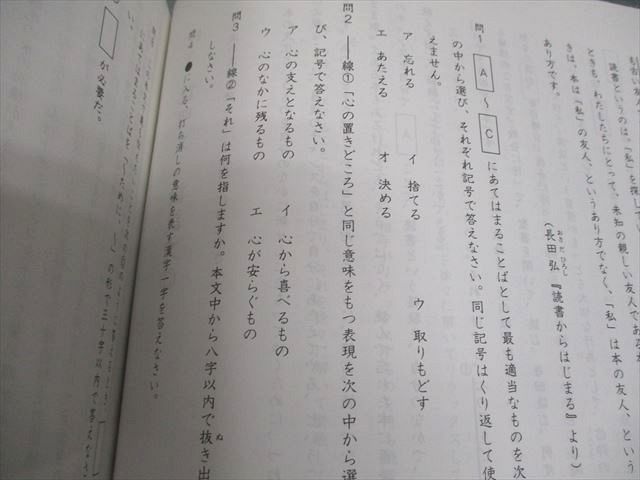 読書というのは、「私」を探し
ときも、わたしたちにとって、未知の親しい友人である
きは、本は「私」の友人、というあり方でなく、「私」は本の友人、という
あり方です。
（長田 弘『読書からはじまる』より）
おさだ ひろし
問1 A ～ C にあてはまることばとして最も適当なものを次
の中から選び、それぞれ記号で答えなさい。同じ記号はくり返して使
えません。
ア 忘れる イ 捨てる ウ 取りもどす
エ あたえる オ 決める
問2 ――線①「心の置きどころ」と同じ意味をもつ表現を次の中から選
び、記号で答えなさい。
ア 心の支えとなるもの イ 心から喜べるもの
ウ 心のなかに残るもの エ 心が安らぐもの
問3 ――線②「それ」は何を指しますか。本文中から八字以内で抜き出
ぬ
しなさい。
問4 ●に入る、打ち消しの意味を表す漢字一字を答えなさい。
ために、 の形で三十字以内で答えなさ
い。
が必要だ。